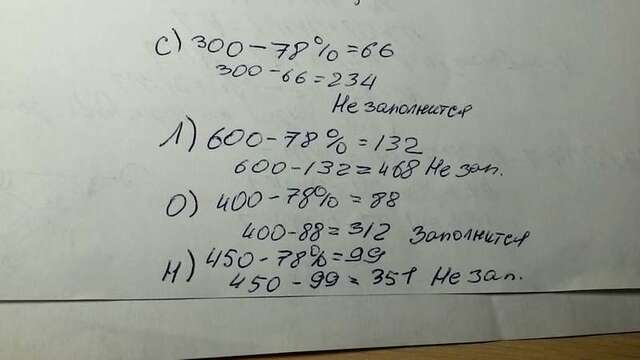 С) 300 - 78% = 66
300 - 66 = 234
Не заполнится
Л) 600 - 78% = 132
600 - 132 = 468 Не зап.
О) 400 - 78% = 88
400 - 88 = 312 Заполнится
Н) 450 - 78% = 99
450 - 99 = 351 Не зап.